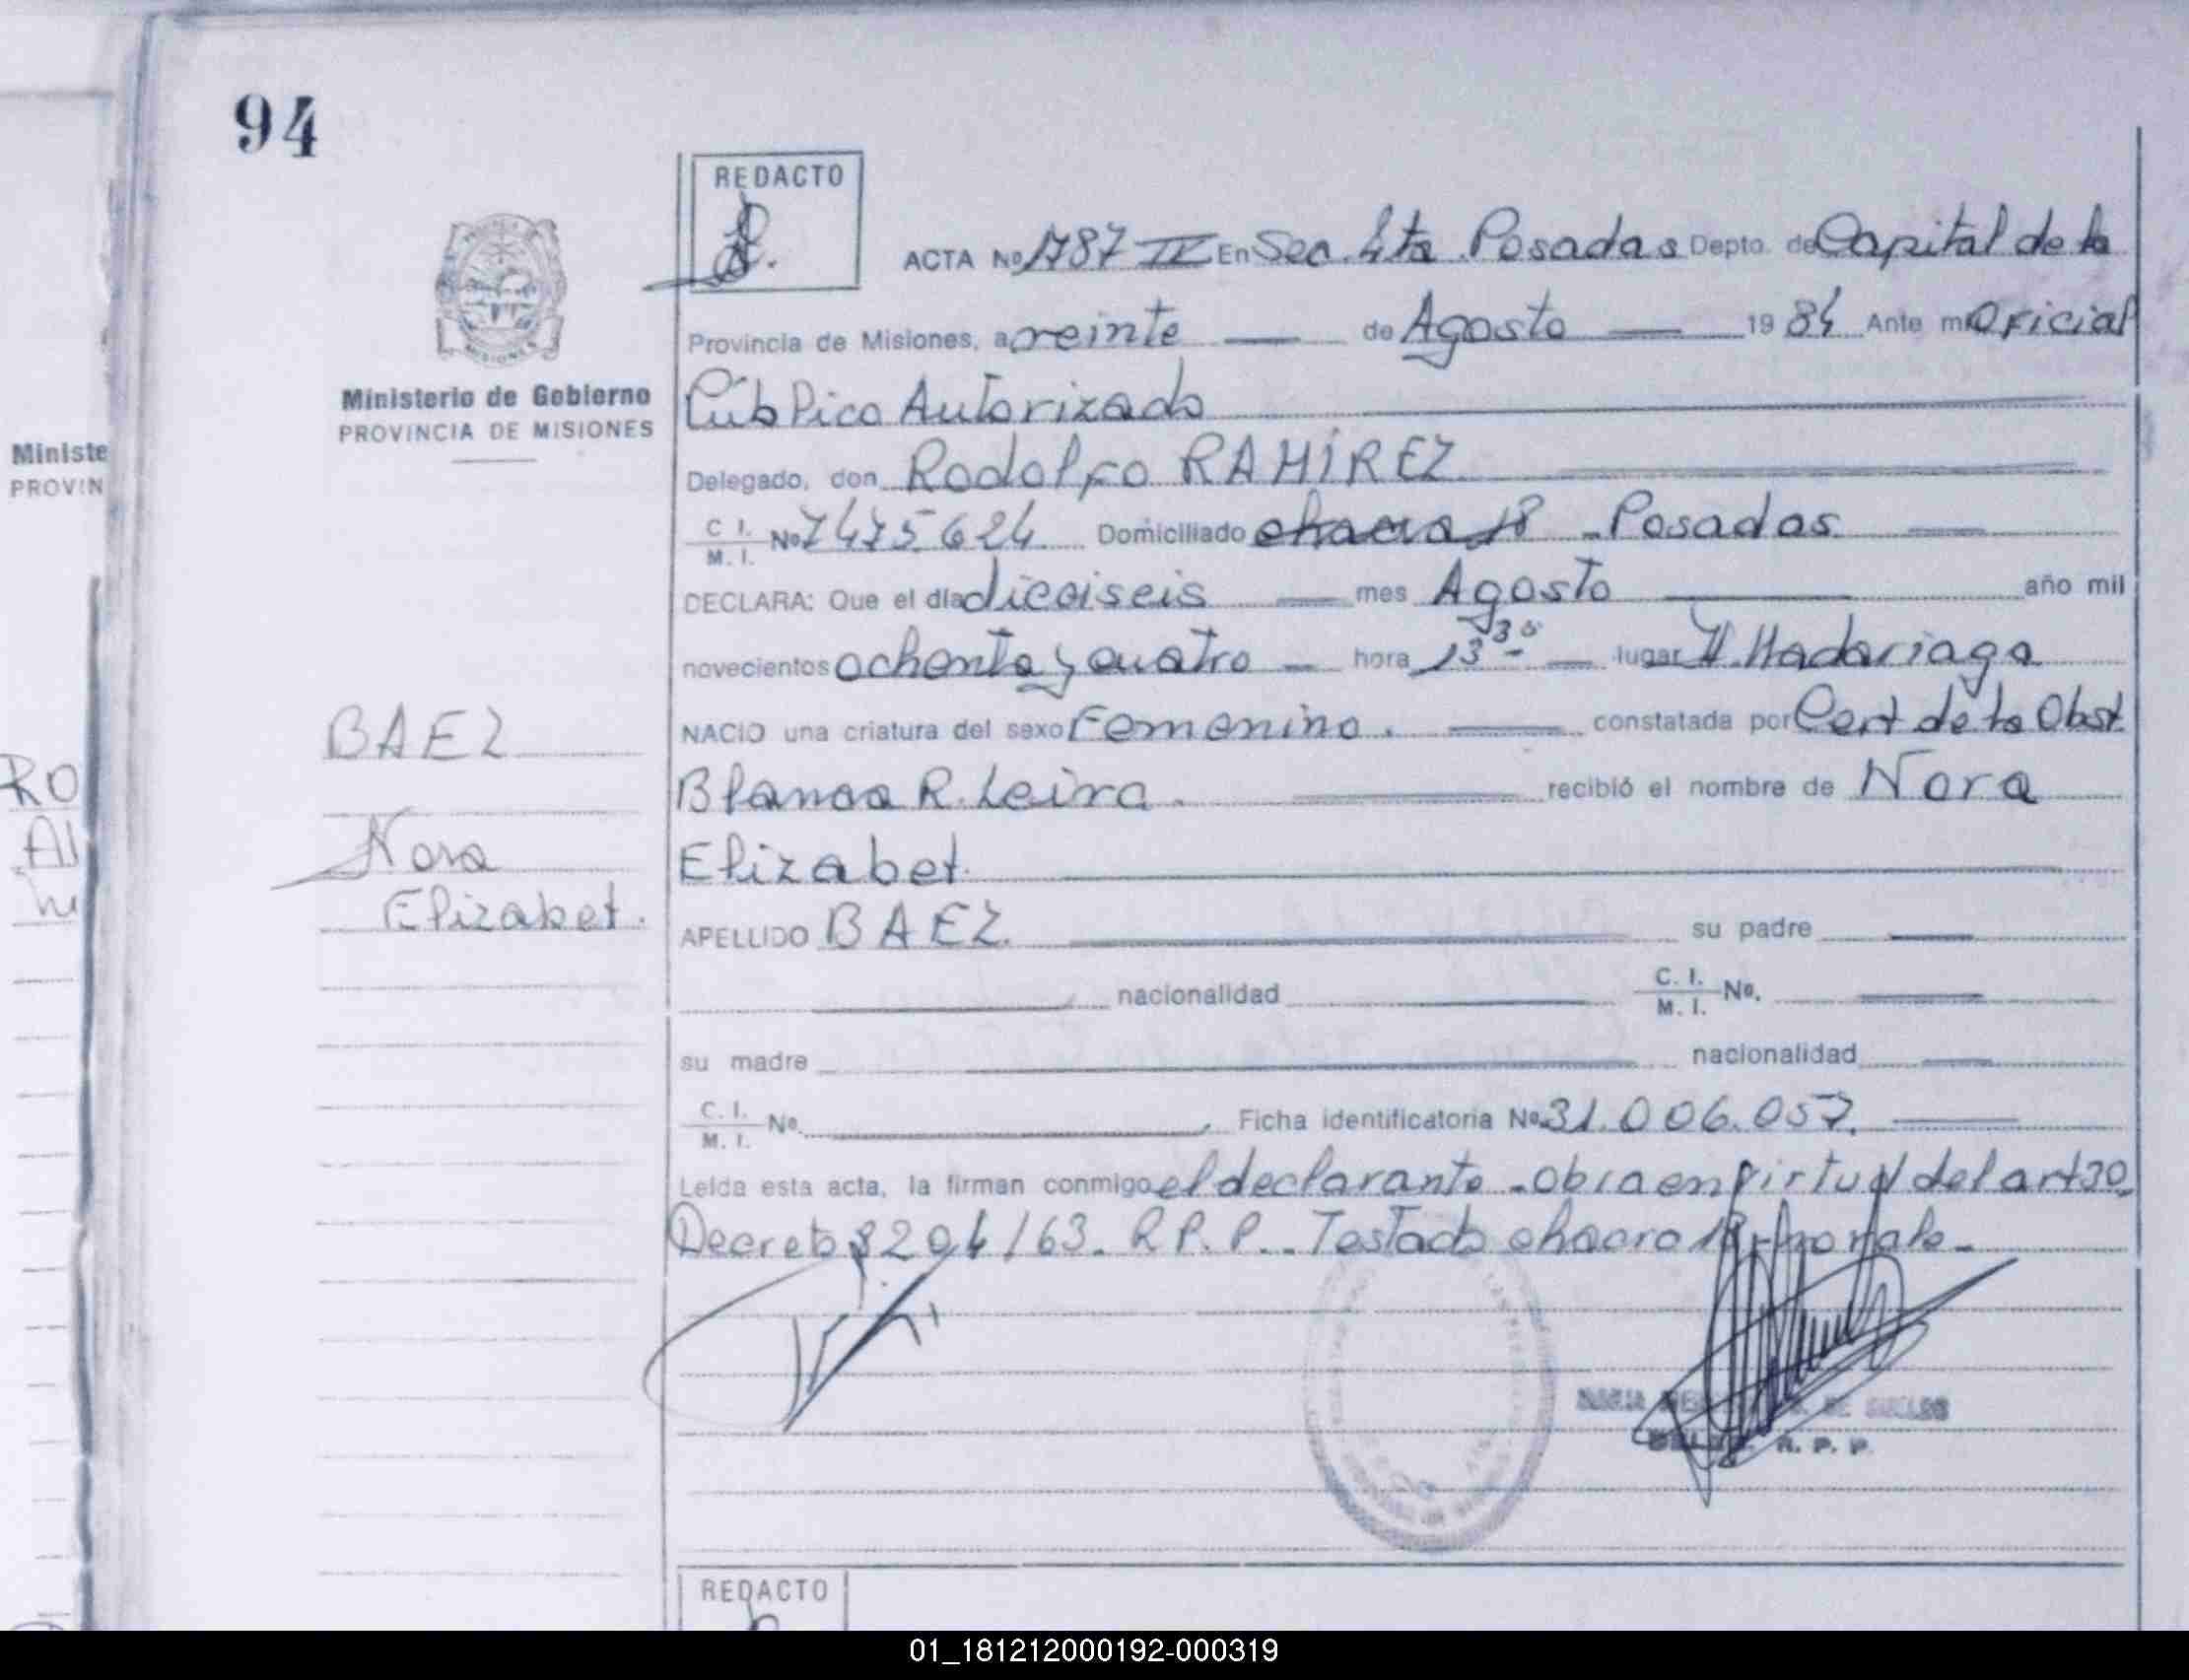 94
REDACTO
ACTA Nº 1787 IV En Sec. 4ta Posadas Depto. de Capital de la
Provincia de Misiones, a veinte de Agosto 1984 Ante mi Oficial
Ministerio de Gobierno
PROVINCIA DE MISIONES
Público Autorizado
Delegado, don Rodolfo RAMÍREZ
C I. M. I. Nº 7475624 Domiciliado chacra 18 - Posadas
DECLARA: Que el día dieciseis mes Agosto año mil
novecientos ochenta y cuatro hora 13 30 lugar H. Madariaga
BAEZ
NACIO una criatura del sexo Femenino. constatada por Cert de la Obst.
Blanca R. Leiva recibió el nombre de Nora
Nora
Elizabet.
Elizabet.
APELLIDO BAEZ. su padre
nacionalidad C. I. M. I. Nº.
su madre nacionalidad
C. I. M. I. Nº. Ficha identificatoria Nº 31.006.057.
Leída esta acta, la firman conmigo el declarante - Obra en virtud del art 30
Decreto 8204/63. R.P.P.. Testado chacro 18 - no vale -
DE
R. P. P.
REDACTO
Ministe
PROVIN
RO
Al
01_181212000192-000319